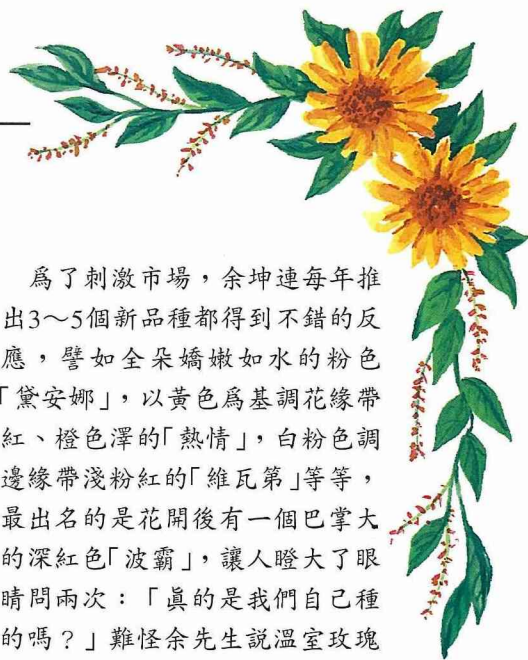 為了刺激市場，余坤連每年推
出3～5個新品種都得到不錯的反
應，譬如全朵嬌嫩如水的粉色
「黛安娜」，以黃色為基調花緣帶
紅、橙色澤的「熱情」，白粉色調
邊緣帶淺粉紅的「維瓦第」等等，
最出名的是花開後有一個巴掌大
的深紅色「波霸」，讓人瞪大了眼
睛問兩次：「真的是我們自己種
的嗎？」難怪余先生說溫室玫瑰